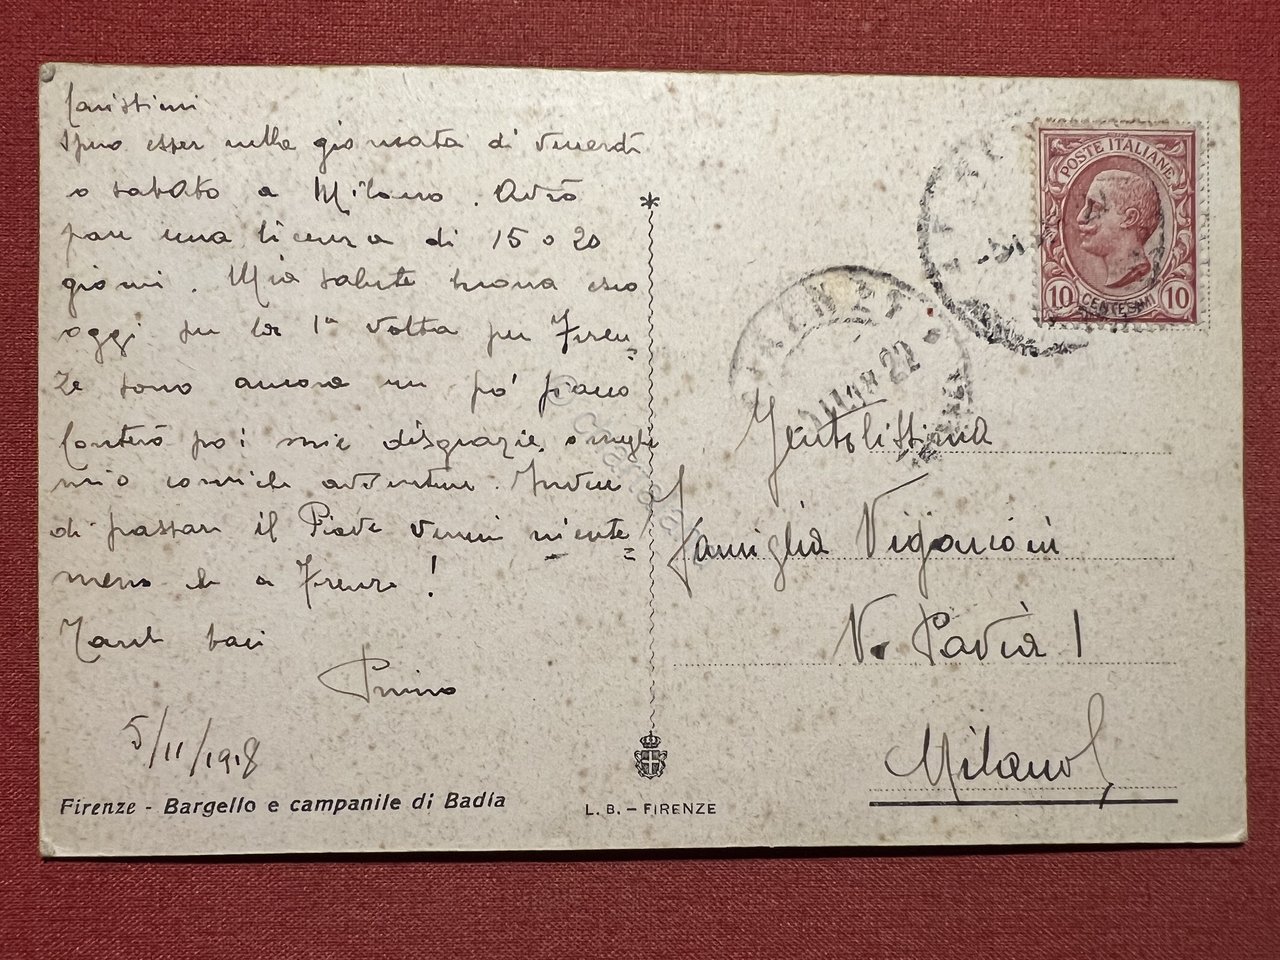 Carissimi
Spero esser nella giornata di Venerdì
o sabato a Milano. Avrò
pare una licenza di 15 o 20
giorni. Mia salute buona esco
oggi per la 1ª volta per Firen=
ze sono ancora un pò fiacco
Conterò poi mie disgrazie o meglio
mie comiche avventure. Invece
di passare il Piave venni niente
meno che a Firenze!
Tanti baci
Primo
5/11/1918
Firenze - Bargello e campanile di Badia
L. B. – FIRENZE
POSTE ITALIANE
10 CENTESIMI 10
FIRENZE
22
Gentilissima
Famiglia Vigoncini
V. Pavia 1
Milano